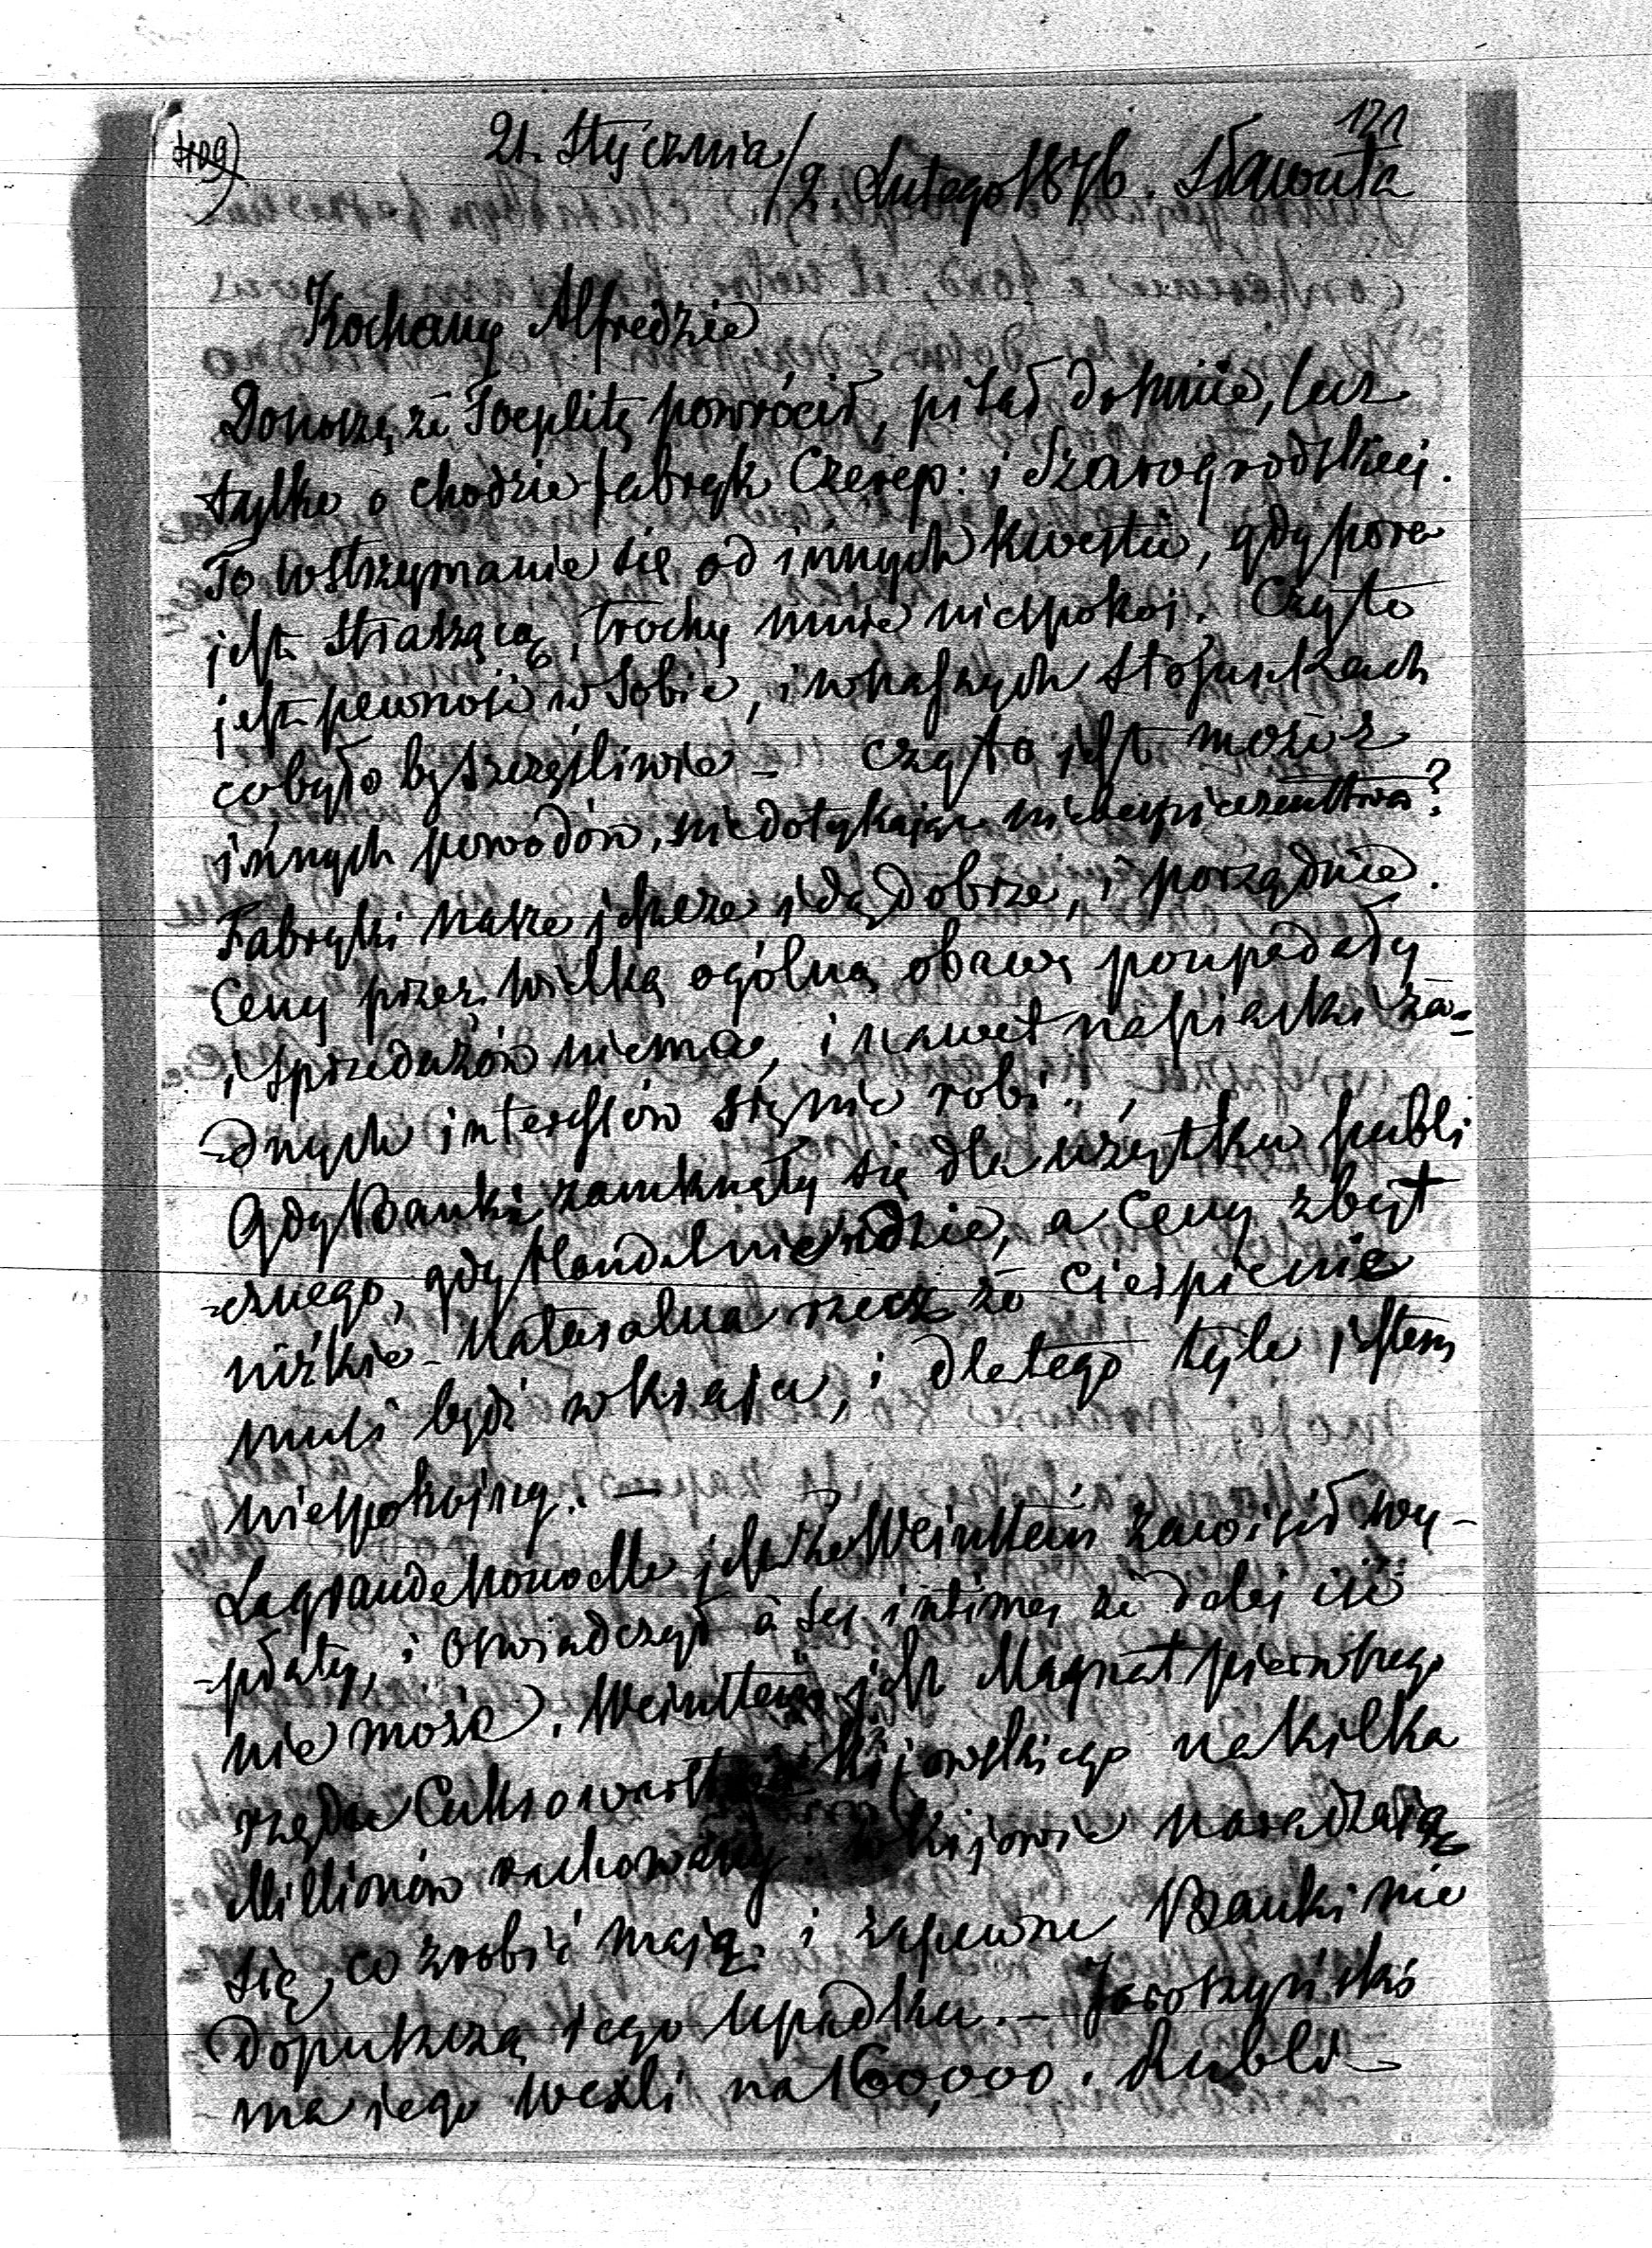 109) 121
21. Stycznia/2. Lutego 1876. Sławuta
Kochany Alfredzie
Donoszę że Toeplitz powrócił, pisał do mnie, lecz
tylko o chodzie fabryk Czerep: i Szarogrodzkiej.
To wstrzymanie się od innych kwestii, gdy pora
jest straszącą, trochę mnie niespokoi. Czy to
jest pewność w sobie, i w naszych stosunkach
co byłoby szczęśliwie – czy to jest może z
innych powodów, niedotykając niebezpieczeństwa?
Fabryki nasze jeszcze idą dobrze, i porządnie.
Ceny przez wielką ogólną obawę poupadały
i sprzedażów niema, i nawet na piaski ża=
=dnych interessów się nie robi.
Gdy Banki zamknęły się dla użytku publi
=cznego, gdy Handel nie idzie, a Ceny zbyt
nizkie – Naturalna rzecz że cierpienie
musi być w kraju, i dlatego tyle jestem
niespokojny. —
La grande nouvelle jest że Weinstein zawiesił wy-
-płaty, i oświadczył à ses intimes że dalej iść
nie może. Weinstein jest Magnat pierwszego
rzędu Kijowskiego na kilka
Millionów rachowany. W Kijowie naradzają
się, co zrobić mają. i zapewne Banki nie
dopuszczą jego upadku. – Jaroszyński
ma jego wexli na 160,000. Rubli –